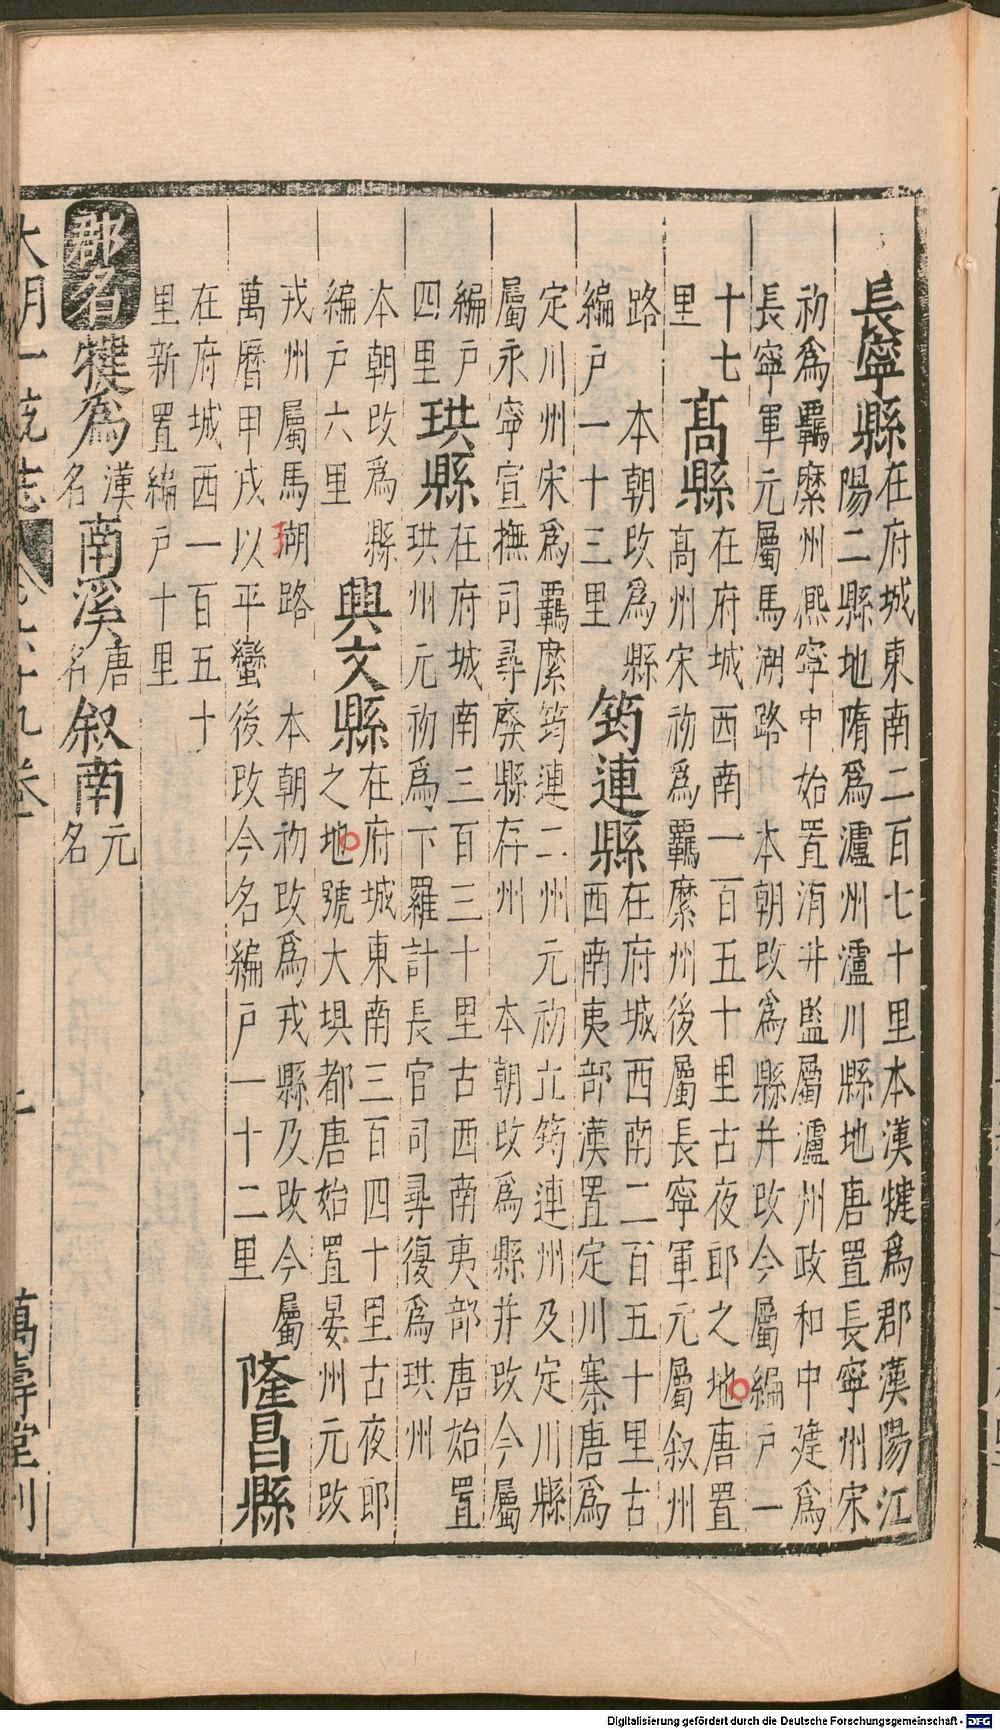 長寧縣
在府城東南二百七十里本漢犍爲郡漢陽江
陽二縣地隋爲瀘州瀘川縣地唐置長寧州宋
初爲羈縻州熈寧中始置淯井監屬瀘州政和中建爲
長寧軍元屬馬湖路 本朝改爲縣并改今屬編戶一
十七
里
高縣
在府城西南一百五十里古夜郎之地唐置
高州宋初爲羈縻州後屬長寧軍元屬叙州
路 本朝改爲縣
編戶一十三里
筠連縣
在府城西南二百五十里古
西南夷部漢置定川寨唐爲
定川州宋爲羈縻筠連二州元初立筠連州及定川縣
屬永寧宣撫司尋廢縣存州 本朝改爲縣并改今屬
編戶
四里
珙縣
在府城南三百三十里古西南夷部唐始置
珙州元初爲下羅計長官司尋復爲珙州
本朝改爲縣
編戶六里
興文縣
在府城東南三百四十里古夜郎
之地號大垻都唐始置晏州元改
戎州屬馬湖路 本朝初改爲戎縣及改今屬
萬曆甲戌以平蠻後改今名編戶一十二里
隆昌縣
在府城西一百五十
里新置編戶十里
郡名 犍爲 漢名 南溪 唐名 叙南 元名
大明一統志 六十九卷 十 萬壽堂刊
Digitalisierung gefördert durch die Deutsche Forschungsgemeinschaft - DFG